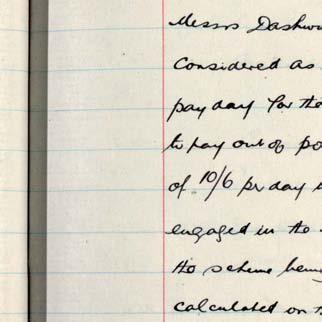 Messrs Dashw
Considered as
pay day for the
to pay out of po
of 10/6 pr day
engaged in the
the scheme being
calculated on